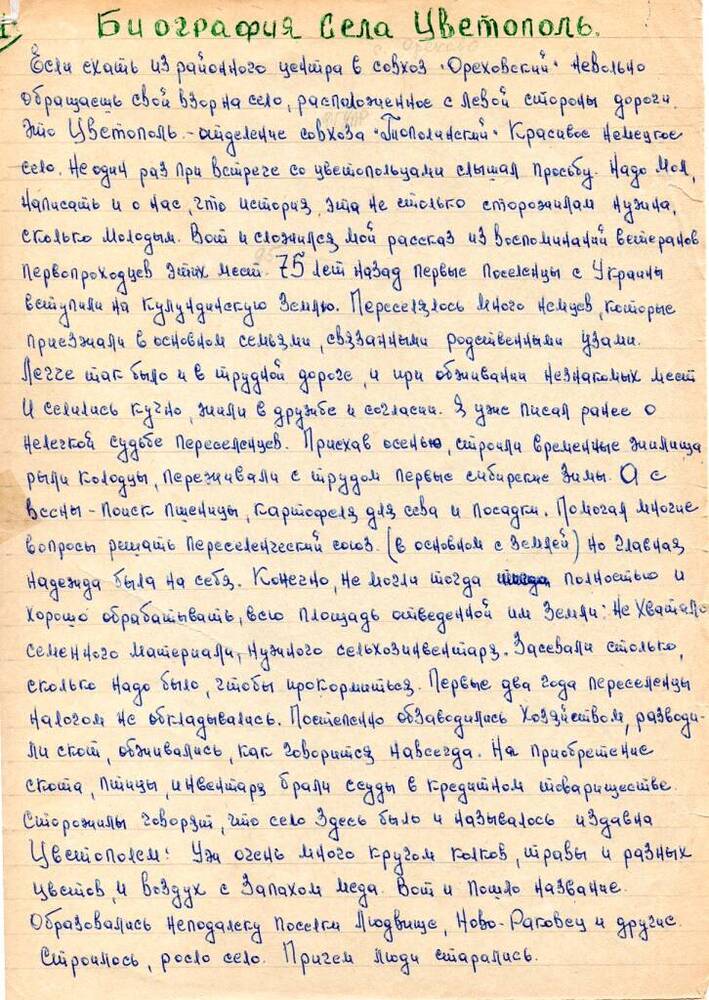 Биография Села Цветополь.
Если ехать из районного центра в совхоз "Ореховский" невольно
обращаешь свой взор на село, расположенное с левой стороны дороги.
Это Цветополь - отделение совхоза "Тополинский" Красивое немецкое
село. Не один раз при встрече со цветопольцами слышал просьбу. Надо мол,
написать и о нас, что история эта не столько старожилам нужна,
сколько молодым. Вот и сложился мой рассказ из воспоминаний ветеранов
первопроходцев этих мест. 75 лет назад первые поселенцы с Украины
вступили на кулундинскую землю. Переселялось много немцев, которые
приезжали в основном семьями, связанными родственными узами.
Легче так было и в трудной дороге, и при обживании незнакомых мест
И селились кучно, жили в дружбе и согласии. Я уже писал ранее о
нелегкой судьбе переселенцев. Приехав осенью, строили временные жилища
рыли колодцы, переживали с трудом первые сибирские зимы. А с
весны - поиск пшеницы, картофеля для сева и посадки. Помогал многие
вопросы решать переселенческий союз. (в основном с землей) Но главная
надежда была на себя. Конечно, не могли тогда полностью и
хорошо обрабатывать, всю площадь отведенной им земли: Не хватало
семенного материала, нужного сельхозинвентаря. Засевали столько,
сколько надо было, чтобы прокормиться. Первые два года переселенцы
налогом не обкладывались. Постепенно обзаводились хозяйством, разводи-
ли скот, обживались, как говорится навсегда. На приобретение
скота, птицы, инвентаря брали ссуды в кредитном товариществе.
Старожилы говорят, что село здесь было и называлось издавна
Цветополем: Уж очень много кругом колков, травы и разных
цветов, и воздух с запахом меда. Вот и пошло название.
Образовались неподалеку поселки Людвище, Ново-Раковец и другие.
Строилось, росло село. Причем люди старались.